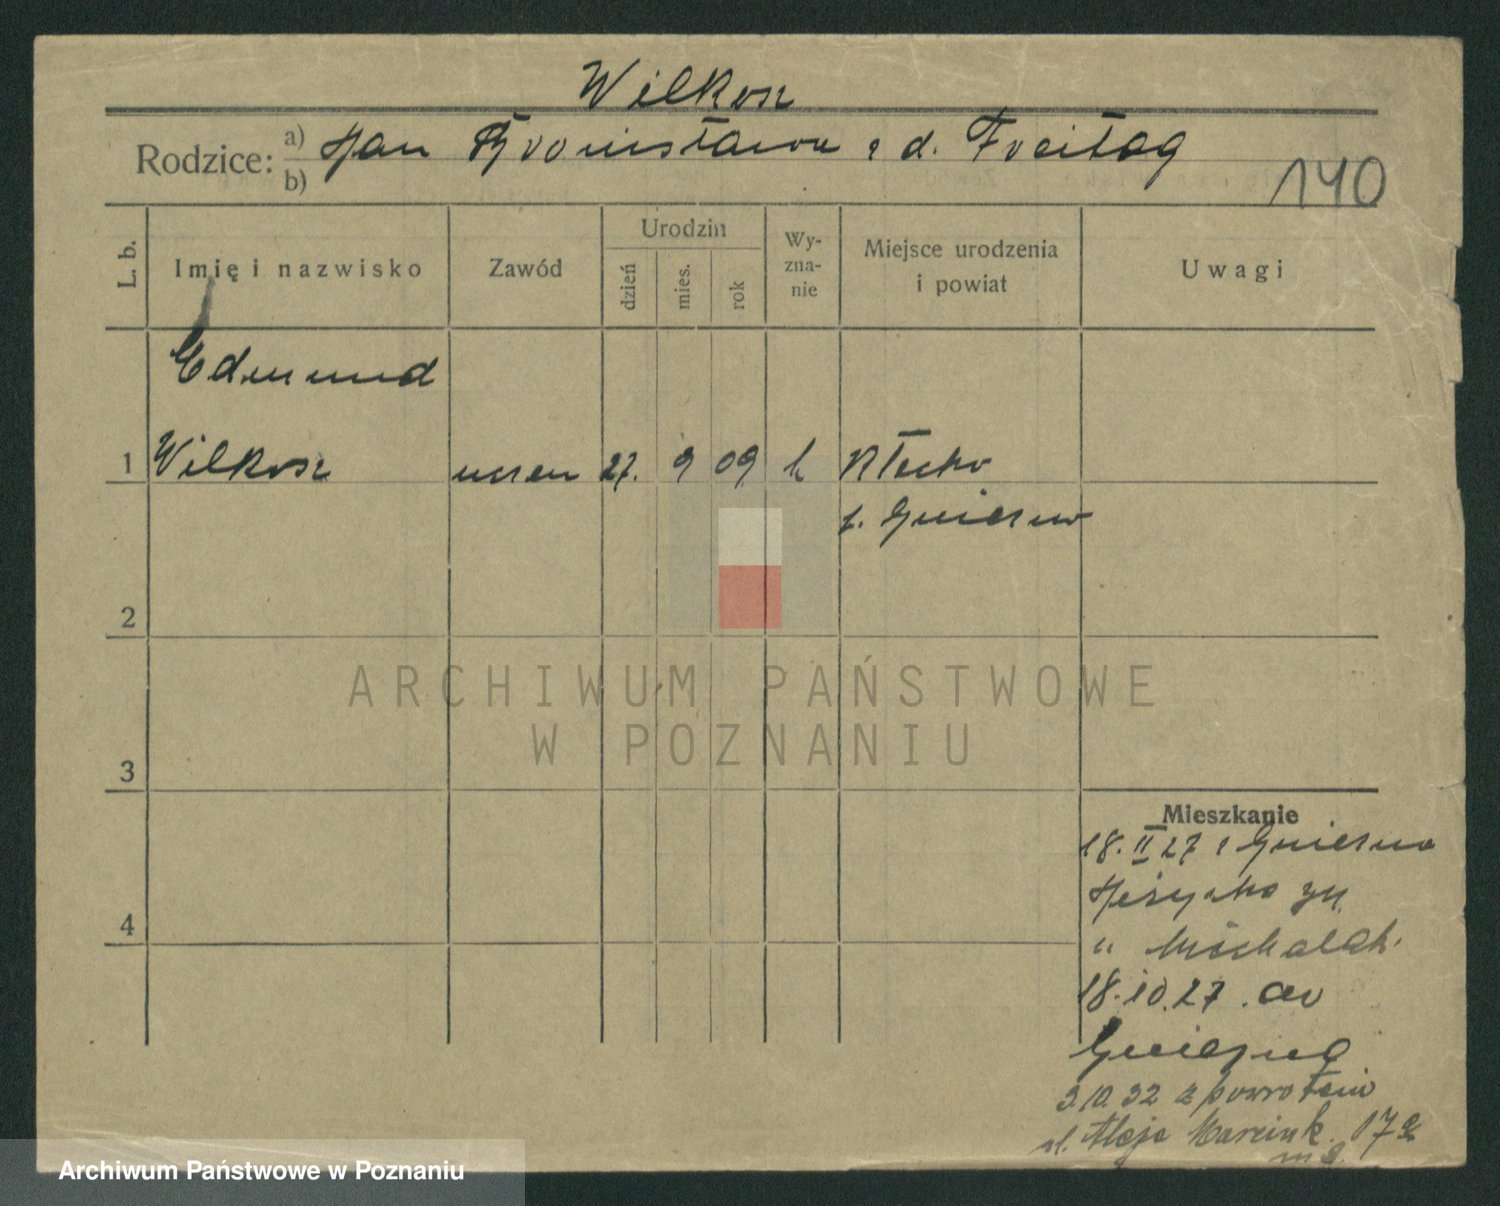 Wilkosz
Rodzice: a) Jan Bronisława z d. Freitag
b)
140
L. b.
Imię i nazwisko
Zawód
Urodzin
dzień
mies.
rok
Wy-
zna-
nie
Miejsce urodzenia
i powiat
Uwagi
Edmund
1 Wilkosz uczeń 27. 9 09 k Kłecko
p. Gniezno
2
3
4
Mieszkanie
18. II 27 z Gniezna
18.10.27. do
Gniezna
3 10 32 z powrotem
ul. Aleje Marcink. 17a
ARCHIWUM PAŃSTWOWE
W POZNANIU
Archiwum Państwowe w Poznaniu